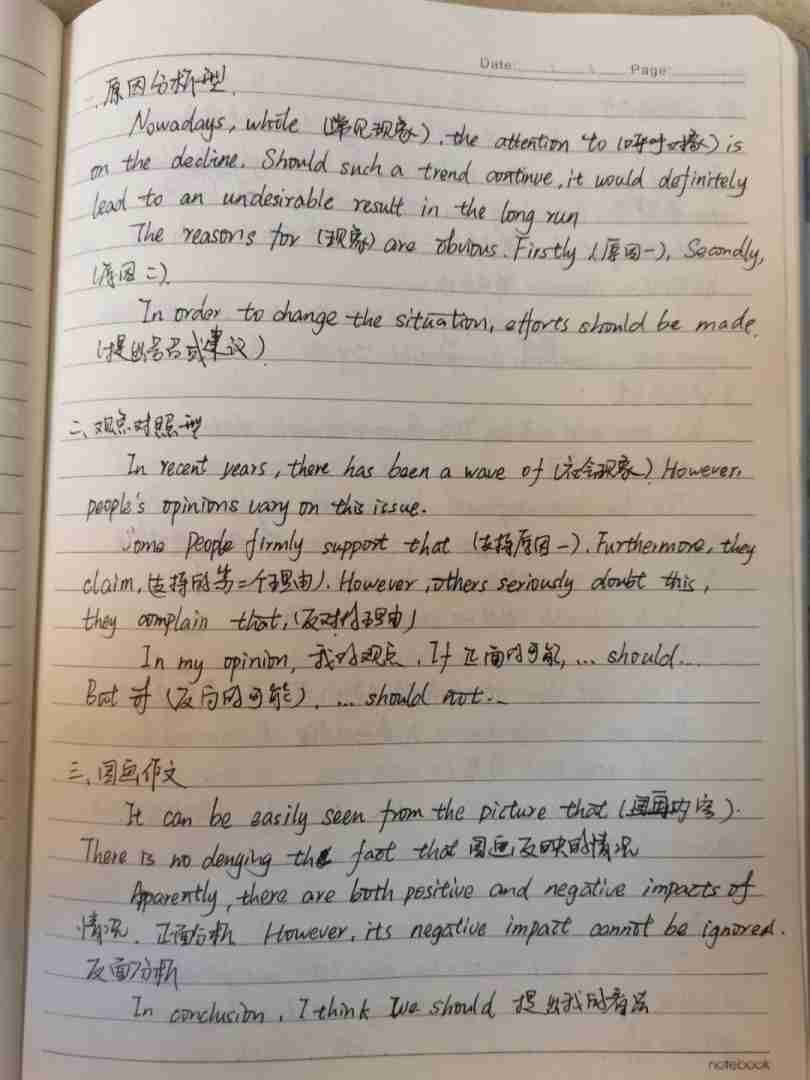 Date: Page:
一、原因分析型.
Nowadays, while (常见现象), the attention to (呼吁对象) is
on the decline. Should such a trend continue, it would definitely
lead to an undesirable result in the long run
The reasons for (现象) are obvious. Firstly (原因一), Secondly,
(原因二).
In order to change the situation, efforts should be made.
(提出号召或建议)
二、观点对照型
In recent years, there has been a wave of (社会现象) However,
people's opinions vary on this issue.
Some People firmly support that (支持原因一). Furthermore, they
claim, (支持的第二个理由). However, others seriously doubt this,
they complain that, (反对的理由)
In my opinion, 我的观点. If 正面的可能, ... should...
But if (反向的可能), ... should not...
三、图画作文
It can be easily seen from the picture that (图画内容).
There is no denging the fact that 图画反映的情况
Apparently, there are both positive and negative impacts of
情况. 正面分析 However, its negative impact cannot be ignored.
反面分析
In conclusion, I think we should 提出我的看法
notebook